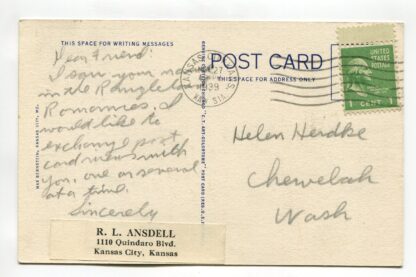 THIS SPACE FOR WRITING MESSAGES
Dear Friend:
I saw your name
in the Rangeland
Romances. I
would like to
exchange post
card views with
you, one or several
at a time.
Sincerely
R. L. ANSDELL
1110 Quindaro Blvd.
Kansas City, Kansas
MAX BERNSTEIN, KANSAS CITY, MO.
"C.T. ART-COLORTONE" POST CARD
POST CARD
THIS SPACE FOR ADDRESS ONLY
KANSAS CITY
27
1939
KANS.
UNITED STATES
POSTAGE
1 CENT 1
Helen Herdke
Chewelah
Wash